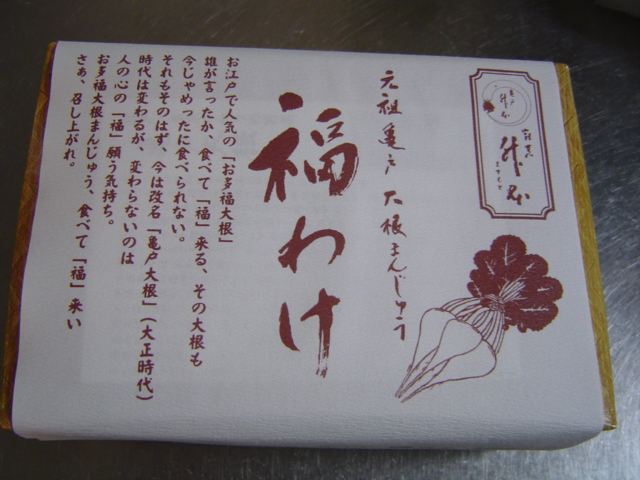 亀戸
升本
升本
ますもと
元祖亀戸 大根まんじゅう
福わけ
お江戸で人気の「お多福大根」
誰が言ったか、食べて「福」来る、その大根も
今じゃめったに食べられない。
それもそのはず、今は改名「亀戸大根」(大正時代)
時代は変わるが、変わらないのは
人の心の「福」願う気持ち。
お多福大根まんじゅう、食べて「福」来い
さぁ、召し上がれ。